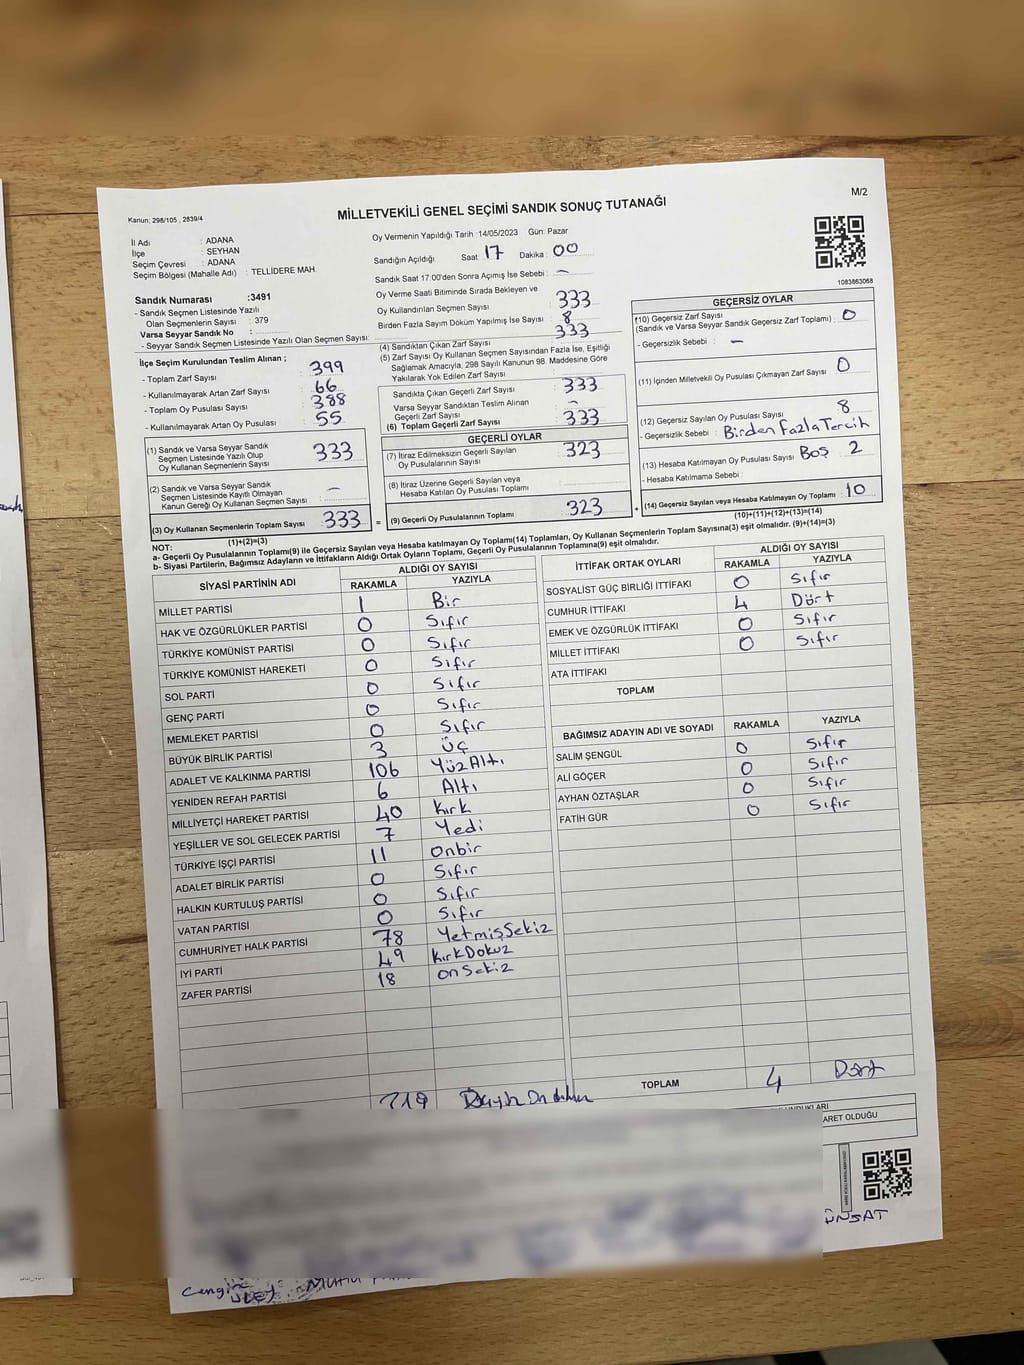 M/2
Kanun: 298/105 , 2839/4
MİLLETVEKİLİ GENEL SEÇİMİ SANDIK SONUÇ TUTANAĞI
İl Adı : ADANA
İlçe : SEYHAN
Seçim Çevresi : ADANA
Seçim Bölgesi (Mahalle Adı) : TELLİDERE MAH.
Oy Vermenin Yapıldığı Tarih :14/05/2023 Gün: Pazar
Sandığın Açıldığı Saat: 17 Dakika: 00
Sandık Saat 17:00'den Sonra Açımış İse Sebebi : —
Oy Verme Saati Bitiminde Sırada Bekleyen ve
Oy Kullandırılan Seçmen Sayısı 333
Birden Fazla Sayım Döküm Yapılmış İse Sayısı : 8
1083863068
Sandık Numarası :3491
- Sandık Seçmen Listesinde Yazılı
Olan Seçmenlerin Sayısı : 379
Varsa Seyyar Sandık No :
- Seyyar Sandık Seçmen Listesinde Yazılı Olan Seçmen Sayısı:
İlçe Seçim Kurulundan Teslim Alınan ;
- Toplam Zarf Sayısı 399
- Kullanılmayarak Artan Zarf Sayısı 66
- Toplam Oy Pusulası Sayısı 388
- Kullanılmayarak Artan Oy Pusulası 55
(1) Sandık ve Varsa Seyyar Sandık
Seçmen Listesinde Yazılı Olup
Oy Kullanan Seçmenlerin Sayısı 333
(2) Sandık ve Varsa Seyyar Sandık
Seçmen Listesinde Kayıtlı Olmayan
Kanun Gereği Oy Kullanan Seçmen Sayısı —
(3) Oy Kullanan Seçmenlerin Toplam Sayısı 333 =
(1)+(2)=(3)
(4) Sandıktan Çıkan Zarf Sayısı 333
(5) Zarf Sayısı Oy Kullanan Seçmen Sayısından Fazla İse, Eşitliği
Sağlamak Amacıyla, 298 Sayılı Kanunun 98. Maddesine Göre
Yakılarak Yok Edilen Zarf Sayısı
Sandıkta Çıkan Geçerli Zarf Sayısı 333
Varsa Seyyar Sandıktan Teslim Alınan
Geçerli Zarf Sayısı —
(6) Toplam Geçerli Zarf Sayısı 333
GEÇERLİ OYLAR
(7) İtiraz Edilmeksizin Geçerli Sayılan
Oy Pusulalarının Sayısı 323
(8) İtiraz Üzerine Geçerli Sayılan veya
Hesaba Katılan Oy Pusulası Toplamı
(9) Geçerli Oy Pusulalarının Toplamı 323 +
GEÇERSİZ OYLAR
(10) Geçersiz Zarf Sayısı
(Sandık ve Varsa Seyyar Sandık Geçersiz Zarf Toplamı) : 0
- Geçersizlik Sebebi : —
(11) İçinden Milletvekili Oy Pusulası Çıkmayan Zarf Sayısı 0
(12) Geçersiz Sayılan Oy Pusulası Sayısı 8
- Geçersizlik Sebebi : Birden Fazla Tercih
(13) Hesaba Katılmayan Oy Pusulası Sayısı Boş 2
- Hesaba Katılmama Sebebi :
(14) Geçersiz Sayılan veya Hesaba Katılmayan Oy Toplamı 10
(10)+(11)+(12)+(13)=(14)
NOT:
a- Geçerli Oy Pusulalarının Toplamı(9) ile Geçersiz Sayılan veya Hesaba katılmayan Oy Toplamı(14) Toplamları, Oy Kullanan Seçmenlerin Toplam Sayısına(3) eşit olmalıdır. (9)+(14)=(3)
b- Siyasi Partilerin, Bağımsız Adayların ve İttifakların Aldığı Ortak Oyların Toplamı, Geçerli Oy Pusulalarının Toplamına(9) eşit olmalıdır.
SİYASİ PARTİNİN ADI ALDIĞI OY SAYISI
RAKAMLA YAZIYLA
MİLLET PARTİSİ 1 Bir
HAK VE ÖZGÜRLÜKLER PARTİSİ 0 Sıfır
TÜRKİYE KOMÜNİST PARTİSİ 0 Sıfır
TÜRKİYE KOMÜNİST HAREKETİ 0 Sıfır
SOL PARTİ 0 Sıfır
GENÇ PARTİ 0 Sıfır
MEMLEKET PARTİSİ 0 Sıfır
BÜYÜK BİRLİK PARTİSİ 3 Üç
ADALET VE KALKINMA PARTİSİ 106 Yüz Altı
YENİDEN REFAH PARTİSİ 6 Altı
MİLLİYETÇİ HAREKET PARTİSİ 40 Kırk
YEŞİLLER VE SOL GELECEK PARTİSİ 7 Yedi
TÜRKİYE İŞÇİ PARTİSİ 11 Onbir
ADALET BİRLİK PARTİSİ 0 Sıfır
HALKIN KURTULUŞ PARTİSİ 0 Sıfır
VATAN PARTİSİ 0 Sıfır
CUMHURİYET HALK PARTİSİ 78 Yetmiş Sekiz
İYİ PARTİ 49 Kırk Dokuz
ZAFER PARTİSİ 18 On Sekiz
319
İTTİFAK ORTAK OYLARI ALDIĞI OY SAYISI
RAKAMLA YAZIYLA
SOSYALİST GÜÇ BİRLİĞİ İTTİFAKI 0 Sıfır
CUMHUR İTTİFAKI 4 Dört
EMEK VE ÖZGÜRLÜK İTTİFAKI 0 Sıfır
MİLLET İTTİFAKI 0 Sıfır
ATA İTTİFAKI
TOPLAM
BAĞIMSIZ ADAYIN ADI VE SOYADI RAKAMLA YAZIYLA
SALİM ŞENGÜL 0 Sıfır
ALİ GÖÇER 0 Sıfır
AYHAN ÖZTAŞLAR 0 Sıfır
FATİH GÜR 0 Sıfır
TOPLAM 4 Dört
ARET OLDUĞU